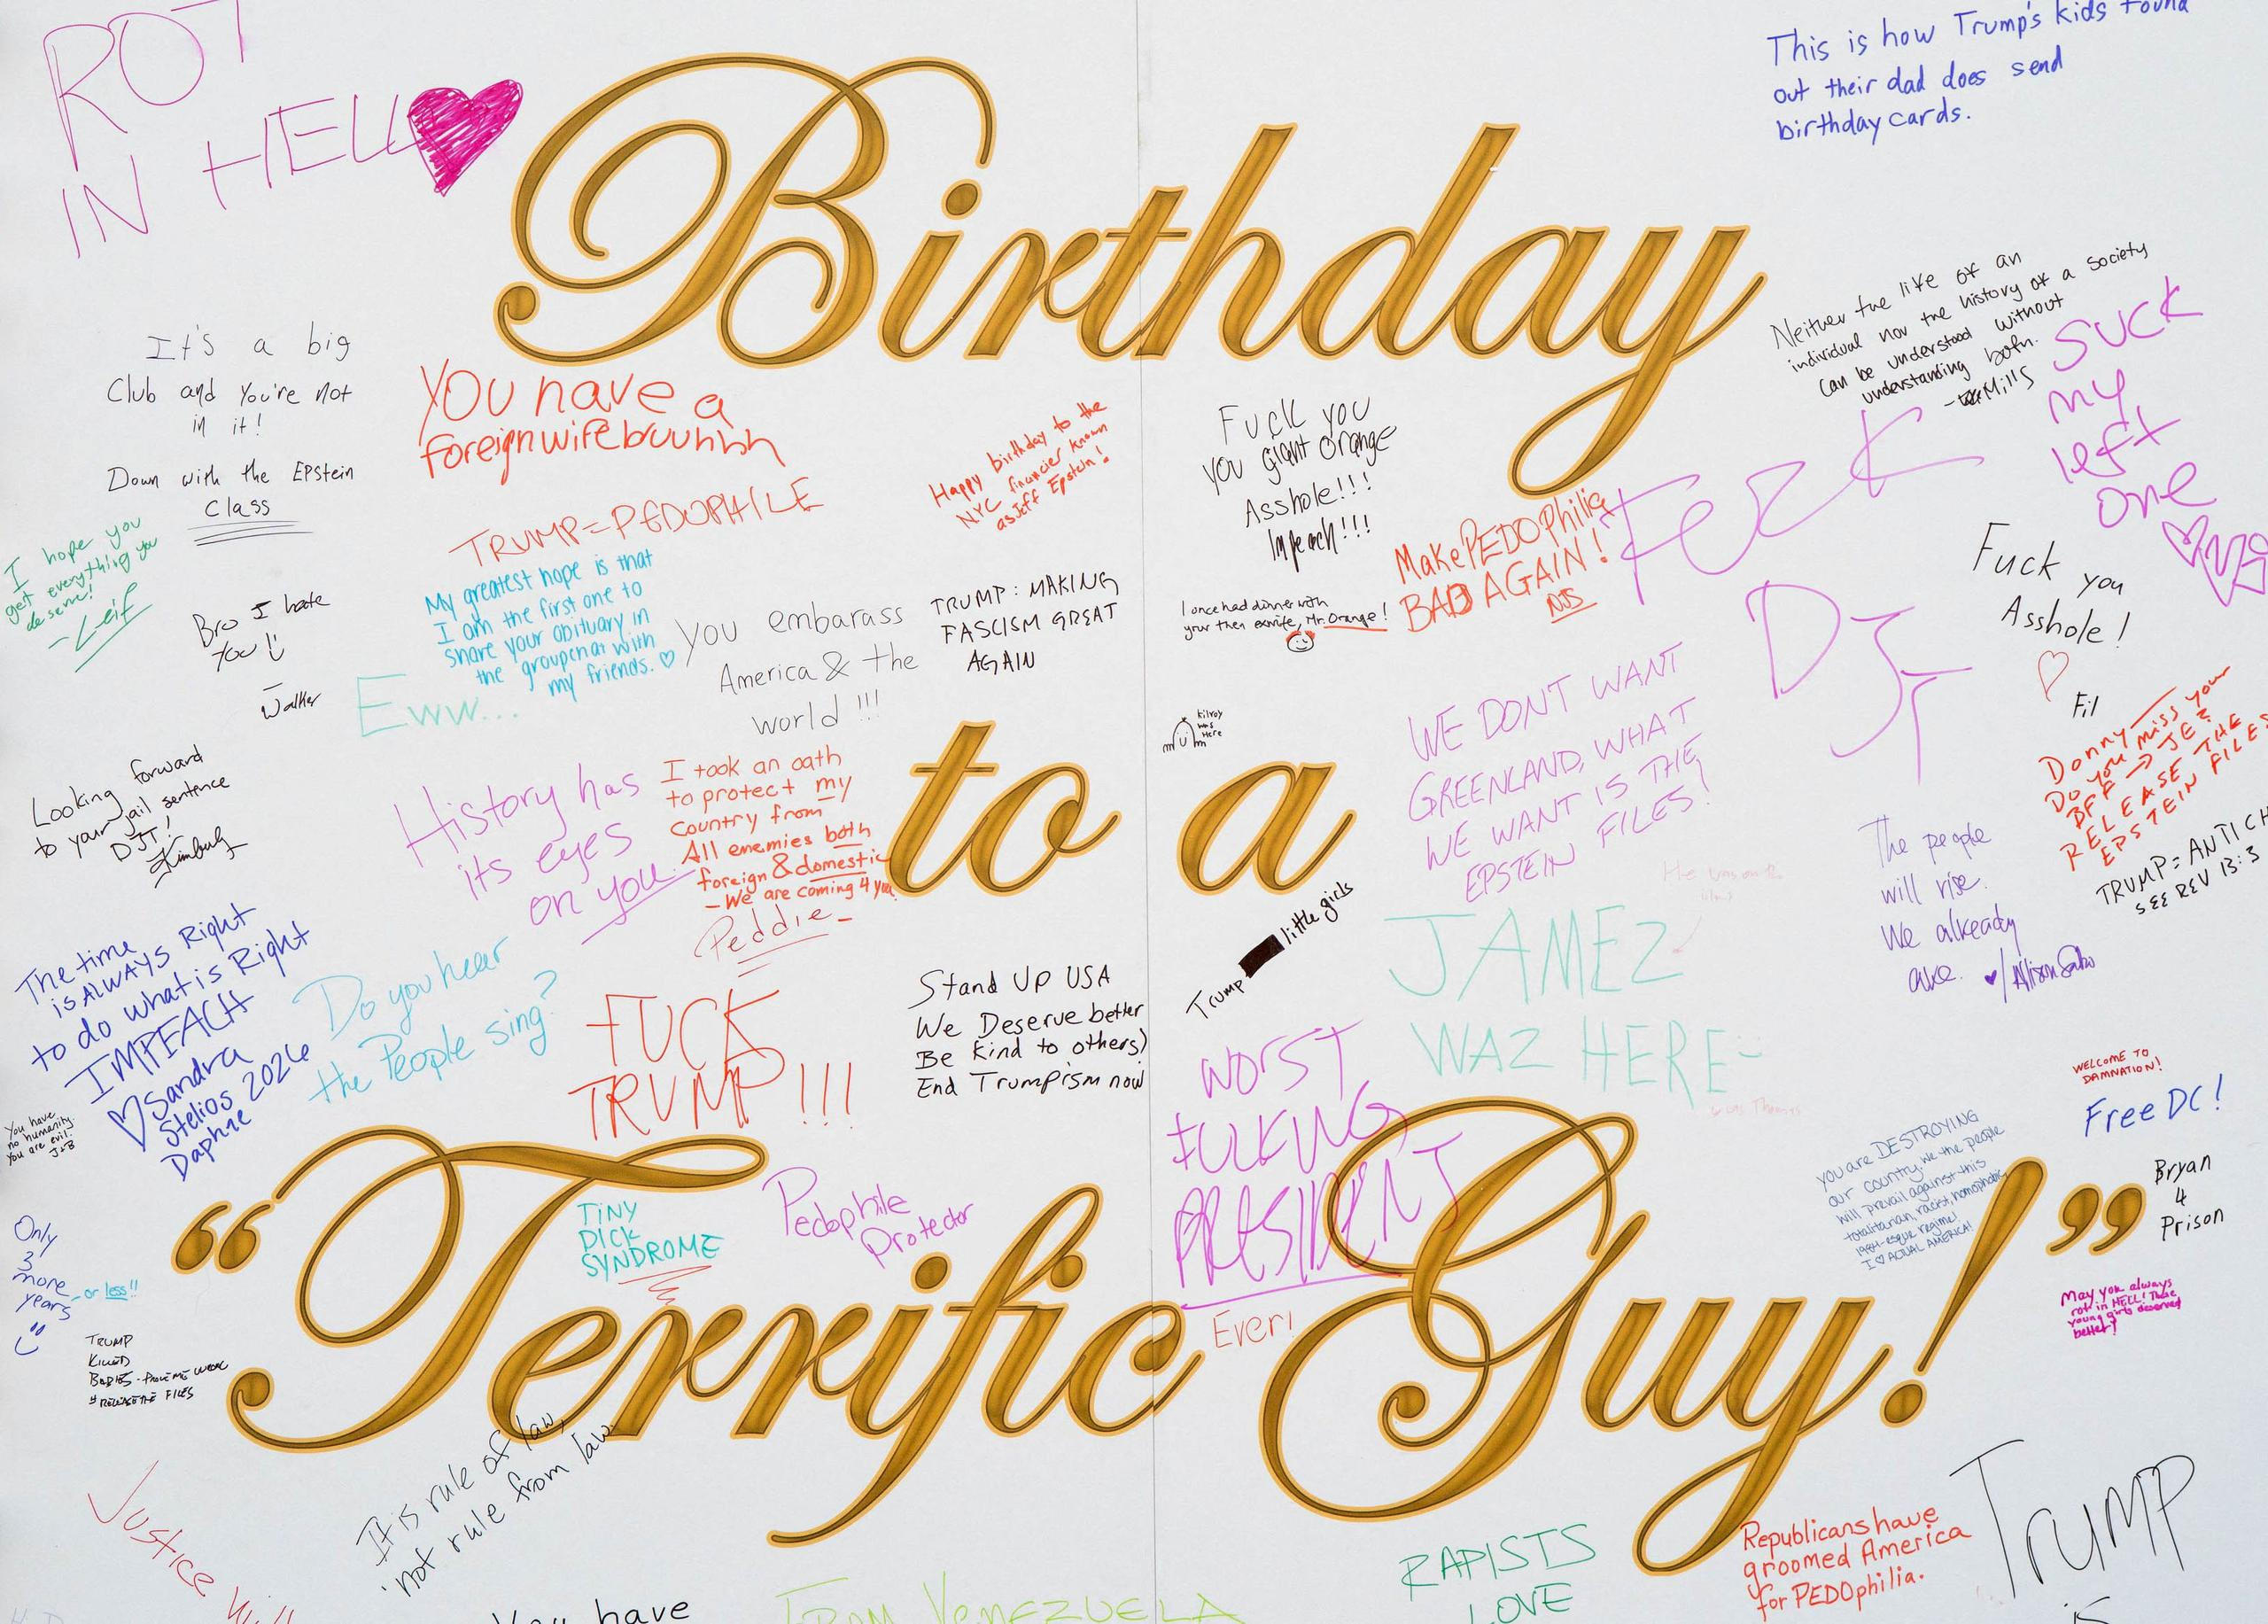 ROT
IN HELL
Birthday
This is how Trump's kids found
out their dad does send
birthday cards.
It's a big
Club and You're not
in it!
Down with the EPstein
class
You have a
foreign wife bruuhhh
Happy birthday to the
NYC financier known
as Jeff Epstein!
Fuck you
you giant orange
Asshole!!!
Impeach!!!
Neither the life of an
individual nor the history of a society
can be understood without
understanding both.
- Mills
SUCK
my
left
one
I hope you
get everything you
deserve!
-Leif
TRUMP=PEDOPHILE
My greatest hope is that
I am the first one to
share your obituary in
the groupchat with
my friends.
Make PEDOphilia
BAD AGAIN!
NJS
DJT
Fuck you
Asshole!
Fil
Bro I hate
You
- Walker
Eww...
You embarass
America & the
world!!!
TRUMP: MAKING
FASCISM GREAT
AGAIN
I once had dinner with
your then exwife, Mr. Orange!
Kilroy
was
Here
WE DON'T WANT
GREENLAND, WHAT
WE WANT IS THE
EPSTEIN FILES!
Donny
Do you miss your
BFF → JE?
RELEASE THE
EPSTEIN FILES
TRUMP = ANTICH
SEE REV 13:3
Looking forward
to your jail sentence
DJT!
History has
its eyes
on you.
I took an oath
to protect my
Country from
All enemies both
foreign & domestic
- We are coming 4 you
Peddie
to a
Trump little girls
He was
JAMEZ
WAZ HERE
The people
will rise.
We already
are.
The time
is ALWAYS Right
to do what is Right
IMPEACH
Sandra
Stelios 2026
Daphne
Do you hear
the People sing?
FUCK
TRUMP!!!
Stand Up USA
We Deserve better
Be Kind to others)
End Trumpism now
WORST
FUCKING
PRESIDENT
Ever!
WELCOME TO
DAMNATION!
Free DC!
You have
no humanity.
You are evil.
J+B
you are DESTROYING
our country. We the people
will prevail against this
totalitarian, racist, homophobic,
1984-esque regime!
I ♡ ACTUAL AMERICA!
Bryan
4
Prison
TINY
DICK
SYNDROME
Pedophile
Protector
"Terrific Guy!"
Only
3
more
years
- or less!!
May you always
rot in HELL! These
young girls deserved
better!
TRUMP
KILLED
BABIES - PROVE ME WRONG
#RELEASE THE FILES
It is rule of law,
not rule from law.
Justice Will
You have
IRAN VENEZUELA
RAPISTS
LOVE
Republicans have
groomed America
for PEDOphilia.
TRUMP
is